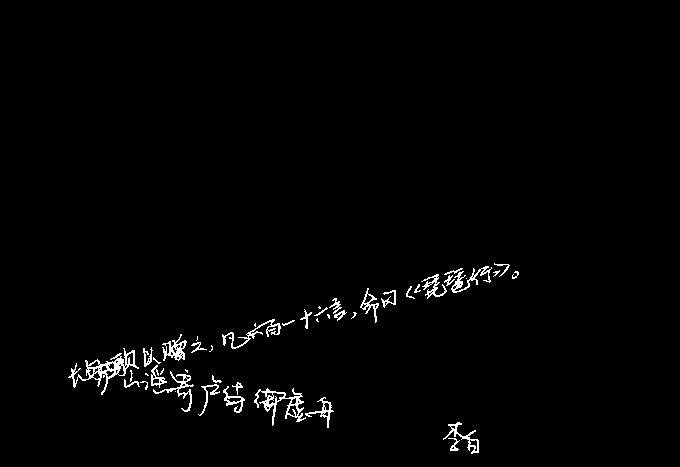 长句歌以赠之，凡六百一十六言，命曰《琵琶行》。
庐山谣寄卢侍御虚舟
李白